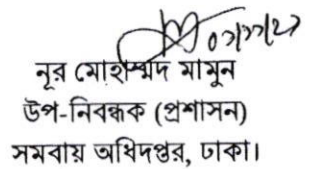 ০১/১১/২১
নূর মোহাম্মদ মামুন
উপ-নিবন্ধক (প্রশাসন)
সমবায় অধিদপ্তর, ঢাকা।